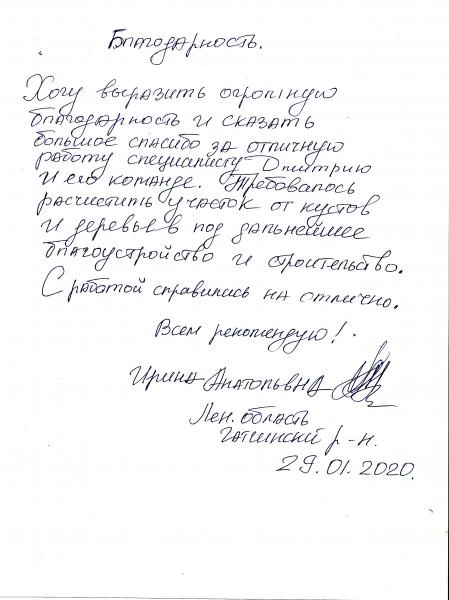 Благодарность.
Хочу выразить огромную
благодарность и сказать
большое спасибо за отличную
работу специалисту Дмитрию
и его команде. Требовалось
расчистить участок от кустов
и деревьев под дальнейшее
благоустройство и строительство.
С работой справились на отлично.
Всем рекомендую!
Ирина Анатольевна
Лен. область
Гатчинский р-н.
29.01.2020.